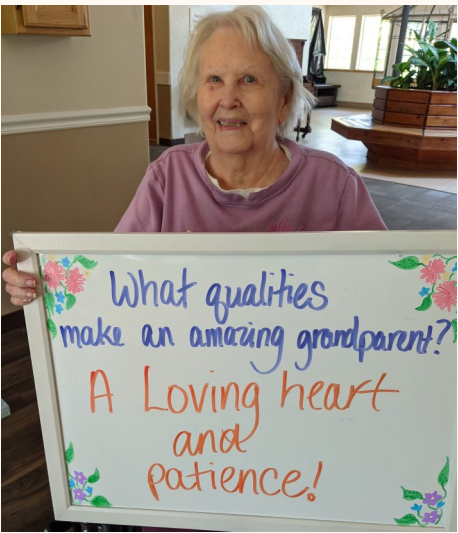 What qualities
make an amazing grandparent?
A Loving heart
and
patience!